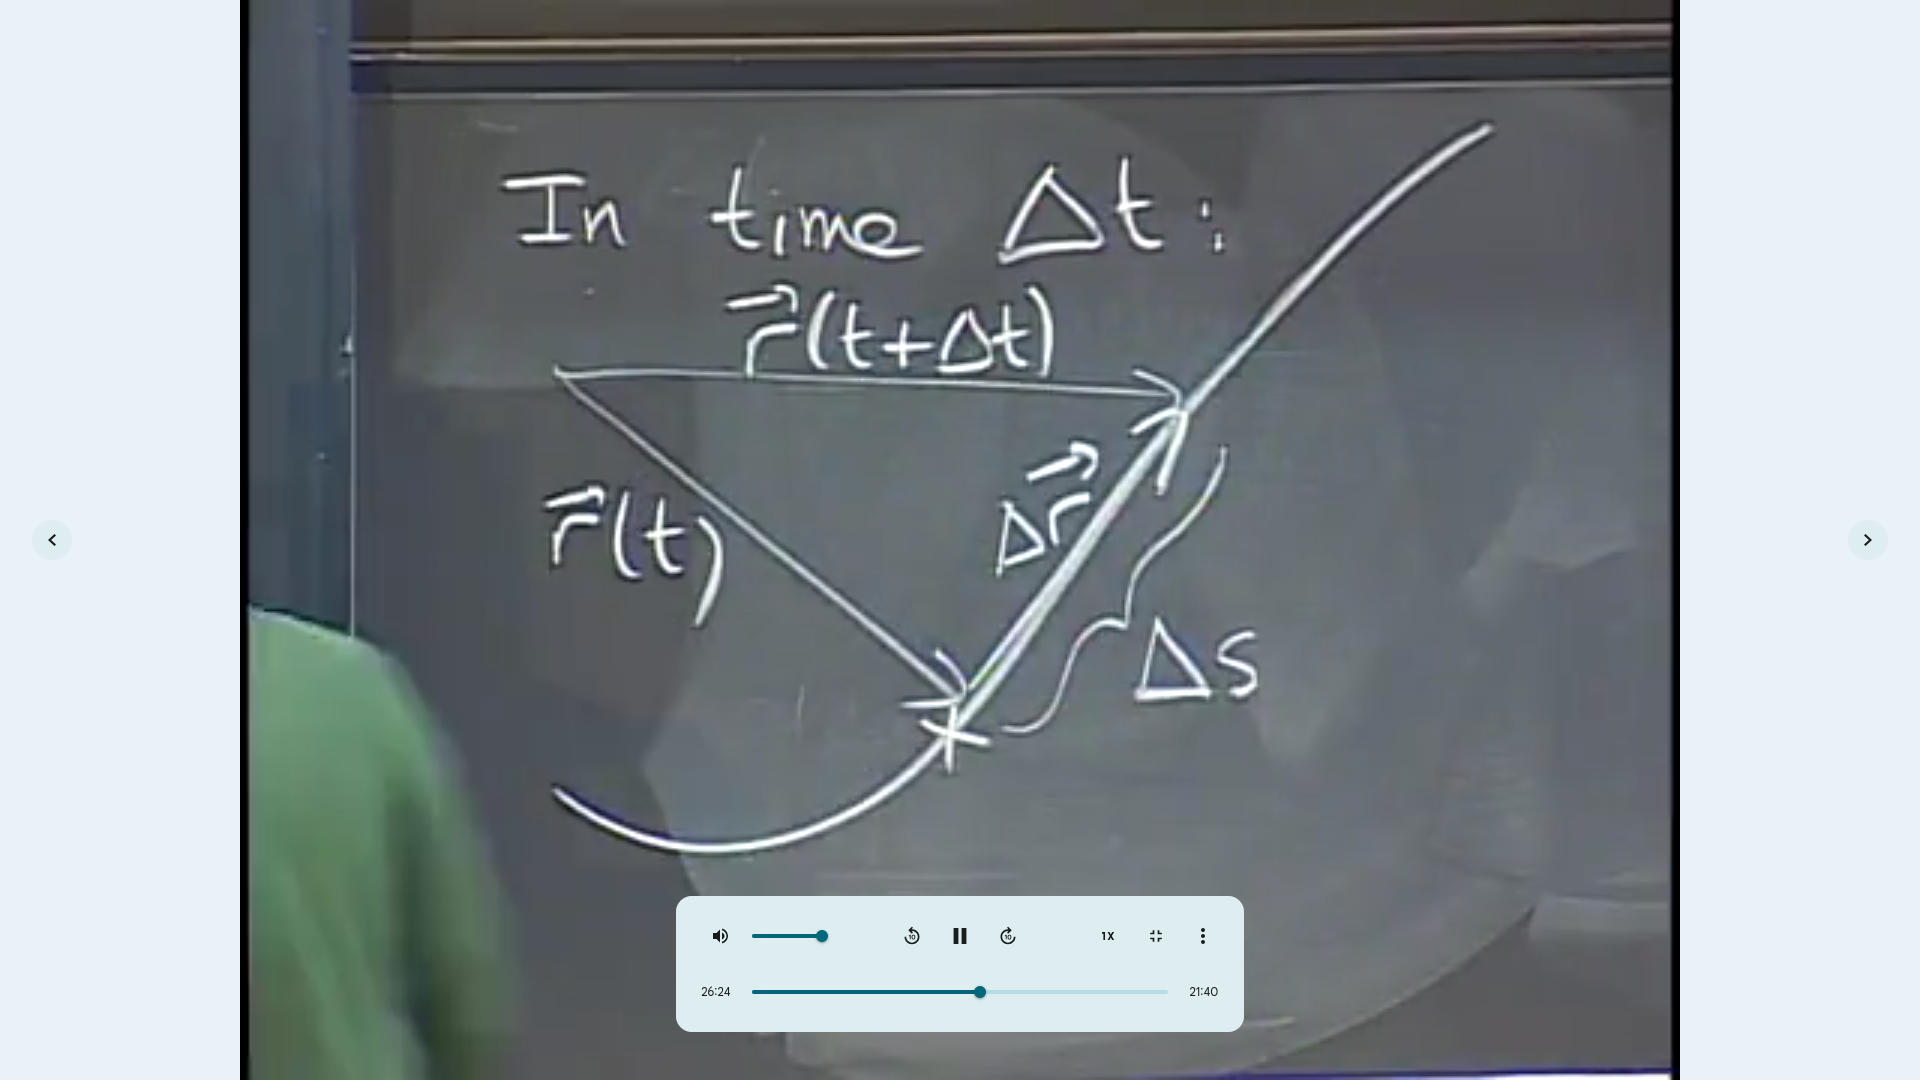 In time Δt:
r⃗(t+Δt)
r⃗(t)
Δr⃗
Δs
10
10
1X
26:24
21:40